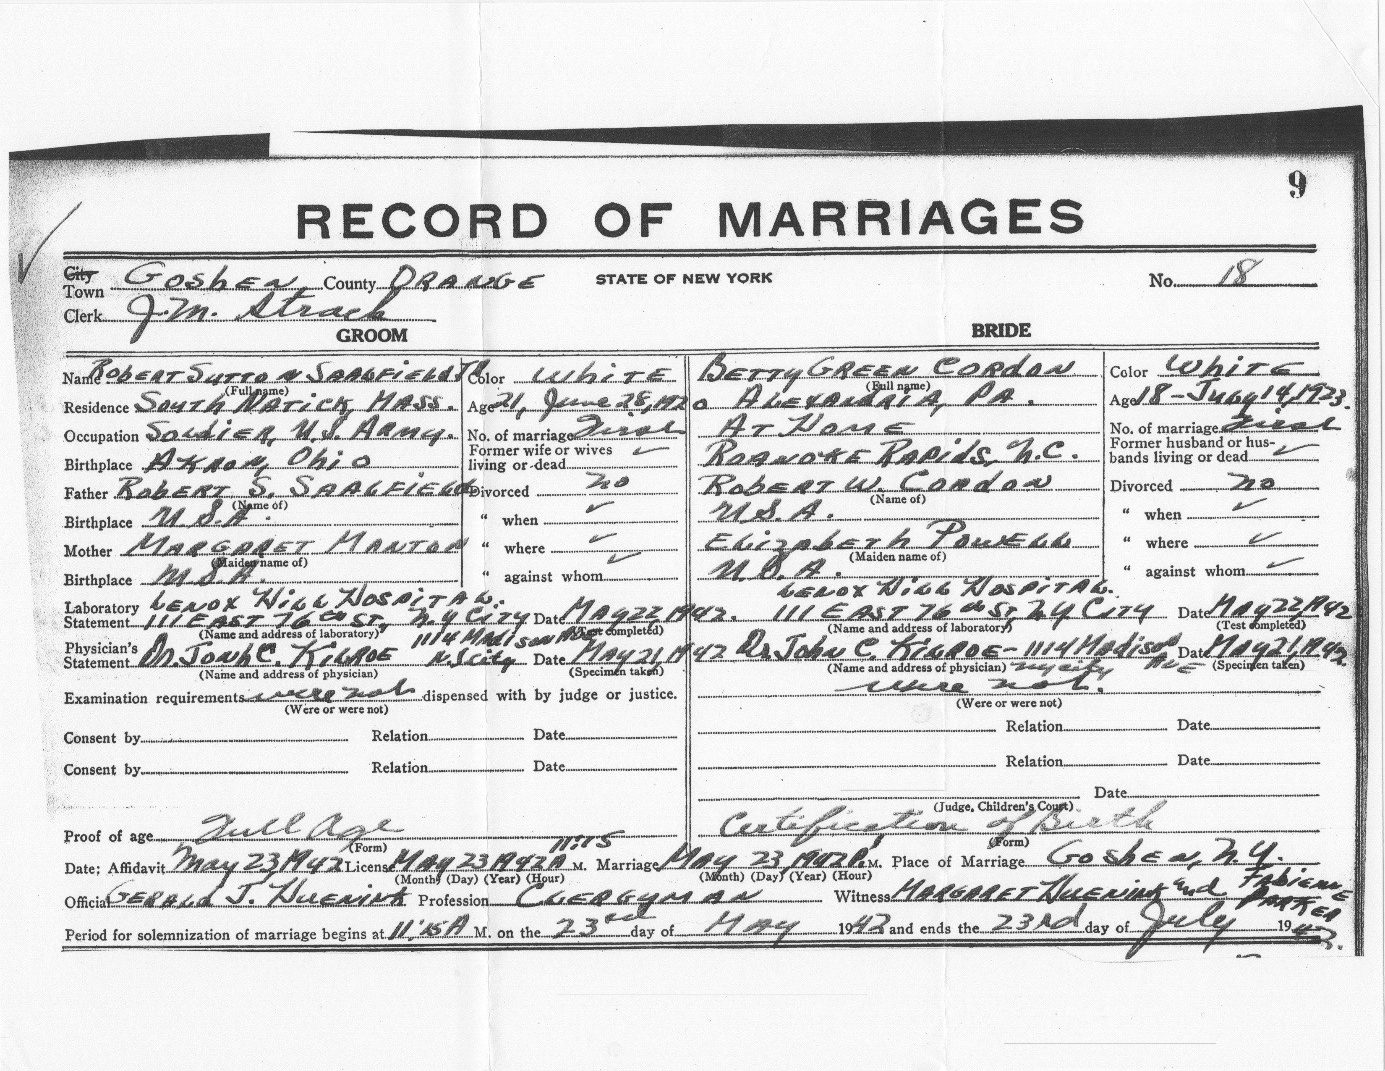 9
RECORD OF MARRIAGES
City Town Goshen County Orange STATE OF NEW YORK No. 18
Clerk J. M. Strack
GROOM BRIDE
Name Robert Sutton Saalfield Color White Betty Green Cordon Color White
(Full name) (Full name)
Residence South Natick, Mass. Age 21, June 28, 1920 Alexandria, Pa. Age 18 - July 14, 1923.
Occupation Soldier, U.S. Army. No. of marriage First At Home No. of marriage First
Former wife or wives living or dead ✓ Former husband or husbands living or dead ✓
Birthplace Akron, Ohio Roanoke Rapids, N.C.
Father Robert S. Saalfield Divorced no Robert W. Cordon Divorced no
(Name of) (Name of)
Birthplace U.S.A. " when ✓ U.S.A. " when ✓
Mother Margaret Manton " where ✓ Elizabeth Powell " where ✓
(Maiden name of) (Maiden name of)
Birthplace U.S.A. " against whom ✓ U.S.A. " against whom ✓
Laboratory Statement Lenox Hill Hospital. 111 East 76th St, N.Y City Date May 22, 1942 Lenox Hill Hospital. 111 East 76th St, N.Y City Date May 22, 1942
(Name and address of laboratory) (Test completed) (Name and address of laboratory) (Test completed)
Physician's Statement Dr. John C. Kilroe 1114 Madison Ave N.Y City Date May 21, 1942 Dr. John C. Kilroe - 1114 Madison Ave N.Y City Date May 21, 1942.
(Name and address of physician) (Specimen taken) (Name and address of physician) (Specimen taken)
Examination requirements were not dispensed with by judge or justice. were not.
(Were or were not) (Were or were not)
Consent by Relation Date Relation Date
Consent by Relation Date Relation Date
Date
(Judge, Children's Court)
Proof of age Full Age Certification of Birth
(Form) (Form)
Date: Affidavit May 23 1942 License May 23 1942 11:15 A M. Marriage May 23 1942 P. M. Place of Marriage Goshen, N.Y.
(Month) (Day) (Year) (Hour) (Month) (Day) (Year) (Hour)
Official Gerald J. Huenink Profession Clergyman Witness Margaret Huenink and Fabienne Parker
Period for solemnization of marriage begins at 11:15 A M. on the 23rd day of May 1942 and ends the 23rd day of July 1942.